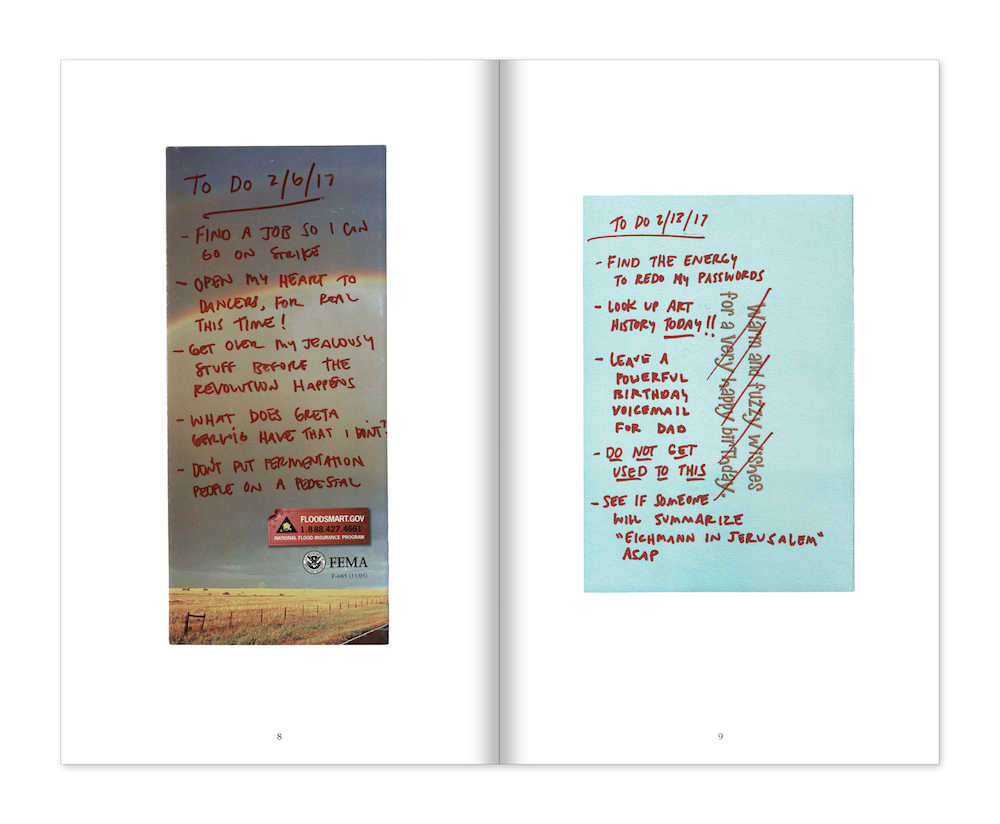 TO DO 2/6/17
- FIND A JOB SO I CAN
GO ON STRIKE
- OPEN MY HEART TO
DANCERS, FOR REAL
THIS TIME!
- GET OVER MY JEALOUSY
STUFF BEFORE THE
REVOLUTION HAPPENS
- WHAT DOES GRETA
GERWIG HAVE THAT I DON'T?
- DON'T PUT FERMENTATION
PEOPLE ON A PEDESTAL
FLOODSMART.GOV
1.888.427.4661
NATIONAL FLOOD INSURANCE PROGRAM
FEMA
F-665 (11/05)
8
TO DO 2/12/17
- FIND THE ENERGY
TO REDO MY PASSWORDS
- LOOK UP ART
HISTORY TODAY!!
- LEAVE A
POWERFUL
BIRTHDAY
VOICEMAIL
FOR DAD
- DO NOT GET
USED TO THIS
- SEE IF SOMEONE
WILL SUMMARIZE
"EICHMANN IN JERUSALEM"
ASAP
Warm and fuzzy wishes
for a very happy birthday.
9